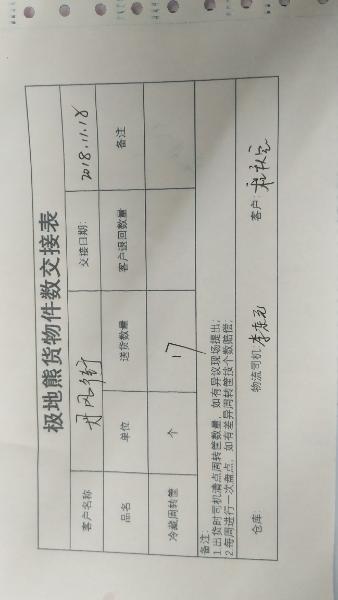 极地熊货物件数交接表
客户名称 丹凤街 交接日期: 2018.11.18
品名 单位 送货数量 客户退回数量 备注
冷藏周转筐 个 17
备注:
1.出货时司机清点周转筐数量，如有异议现场提出;
2.每周进行一次盘点，如有差异周转筐按个数赔偿;
仓库: 物流司机: 客户: